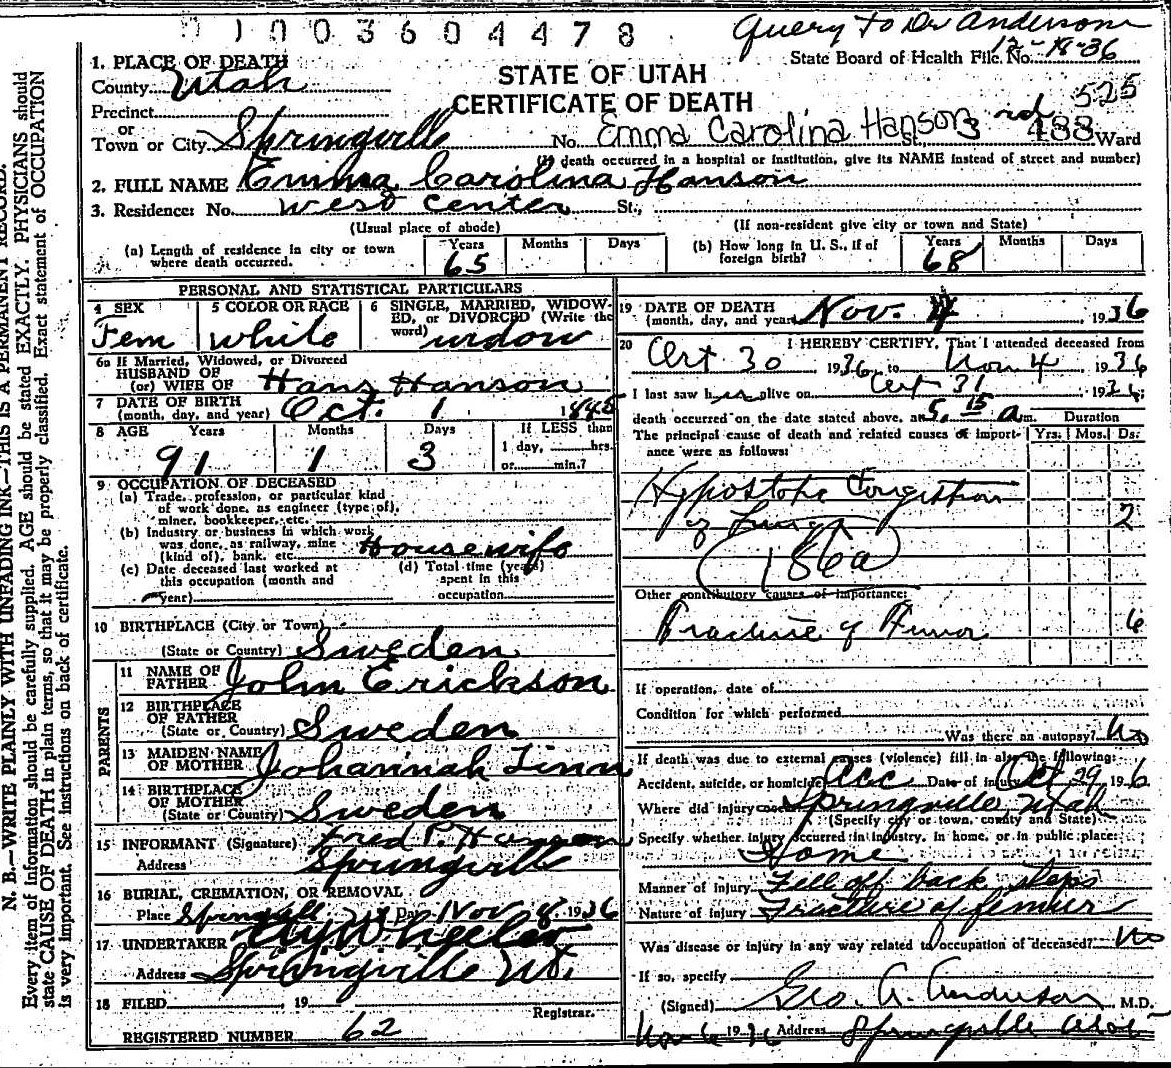 01003604478
Query to Dr Anderson
12-18-36
State Board of Health File No.
1. PLACE OF DEATH
STATE OF UTAH
CERTIFICATE OF DEATH
County Utah
Precinct
525
or
Town or City Springville No. Emma Carolina Hanson St., 3 rd 488 Ward
(If death occurred in a hospital or institution, give its NAME instead of street and number)
2. FULL NAME Emma Carolina Hanson
3. Residence: No. West Center St.,
(Usual place of abode) (If non-resident give city or town and State)
(a) Length of residence in city or town where death occurred. Years 65 Months Days
(b) How long in U. S., if of foreign birth? Years 68 Months Days
PERSONAL AND STATISTICAL PARTICULARS
4 SEX Fem
5 COLOR OR RACE White
6 SINGLE, MARRIED, WIDOWED, or DIVORCED (Write the word) widow
6a If Married, Widowed, or Divorced
HUSBAND OF
(or) WIFE OF Hans Hanson
7 DATE OF BIRTH
(month, day, and year) Oct. 1 1845
8 AGE Years 91 Months 1 Days 3 If LESS than 1 day, hrs. or min.?
9 OCCUPATION OF DECEASED
(a) Trade, profession, or particular kind
of work done, as engineer (type of),
miner, bookkeeper, etc.
(b) Industry or business in which work
was done, as railway, mine
(kind of), bank, etc. Housewife
(c) Date deceased last worked at
this occupation (month and
year)
(d) Total time (years)
spent in this
occupation
10 BIRTHPLACE (City or Town)
(State or Country) Sweden
PARENTS
11 NAME OF
FATHER John Erickson
12 BIRTHPLACE
OF FATHER
(State or Country) Sweden
13 MAIDEN NAME
OF MOTHER Johannah Linn
14 BIRTHPLACE
OF MOTHER
(State or Country) Sweden
15 INFORMANT (Signature) Fred P. Hanson
Address Springville
16 BURIAL, CREMATION, OR REMOVAL
Place Springville Ut Date Nov 8 1936
17 UNDERTAKER Wheeler
Address Springville Ut.
18 FILED , 19
Registrar.
REGISTERED NUMBER 62
19 DATE OF DEATH
(month, day, and year) Nov. 4, 1936
20 I HEREBY CERTIFY, That I attended deceased from
Oct 30 1936, to Nov 4, 1936
I last saw her alive on Oct 31, 1936;
death occurred on the date stated above, at 5.15 a m. Duration
The principal cause of death and related causes of importance were as follows: Yrs. Mos. Ds.
Hypostatic Congestion
of Lungs 2
186a
Other contributory causes of importance:
Fracture of Femur 6
If operation, date of
Condition for which performed
Was there an autopsy? No
If death was due to external causes (violence) fill in also the following:
Accident, suicide, or homicide? Acc Date of injury Oct 29 1936
Where did injury occur? Springville, Utah
(Specify city or town, county and State)
Specify whether injury occurred in industry, in home, or in public place:
Home
Manner of injury Fell off back steps
Nature of injury Fracture of femur
Was disease or injury in any way related to occupation of deceased? No
If so, specify
(Signed) Geo. A. Anderson M.D.
Nov 6 1936 Address Springville
N. B.—WRITE PLAINLY WITH UNFADING INK—THIS IS A PERMANENT RECORD.
Every item of information should be carefully supplied. AGE should be stated EXACTLY. PHYSICIANS should
state CAUSE OF DEATH in plain terms, so that it may be properly classified. Exact statement of OCCUPATION
is very important. See instructions on back of certificate.